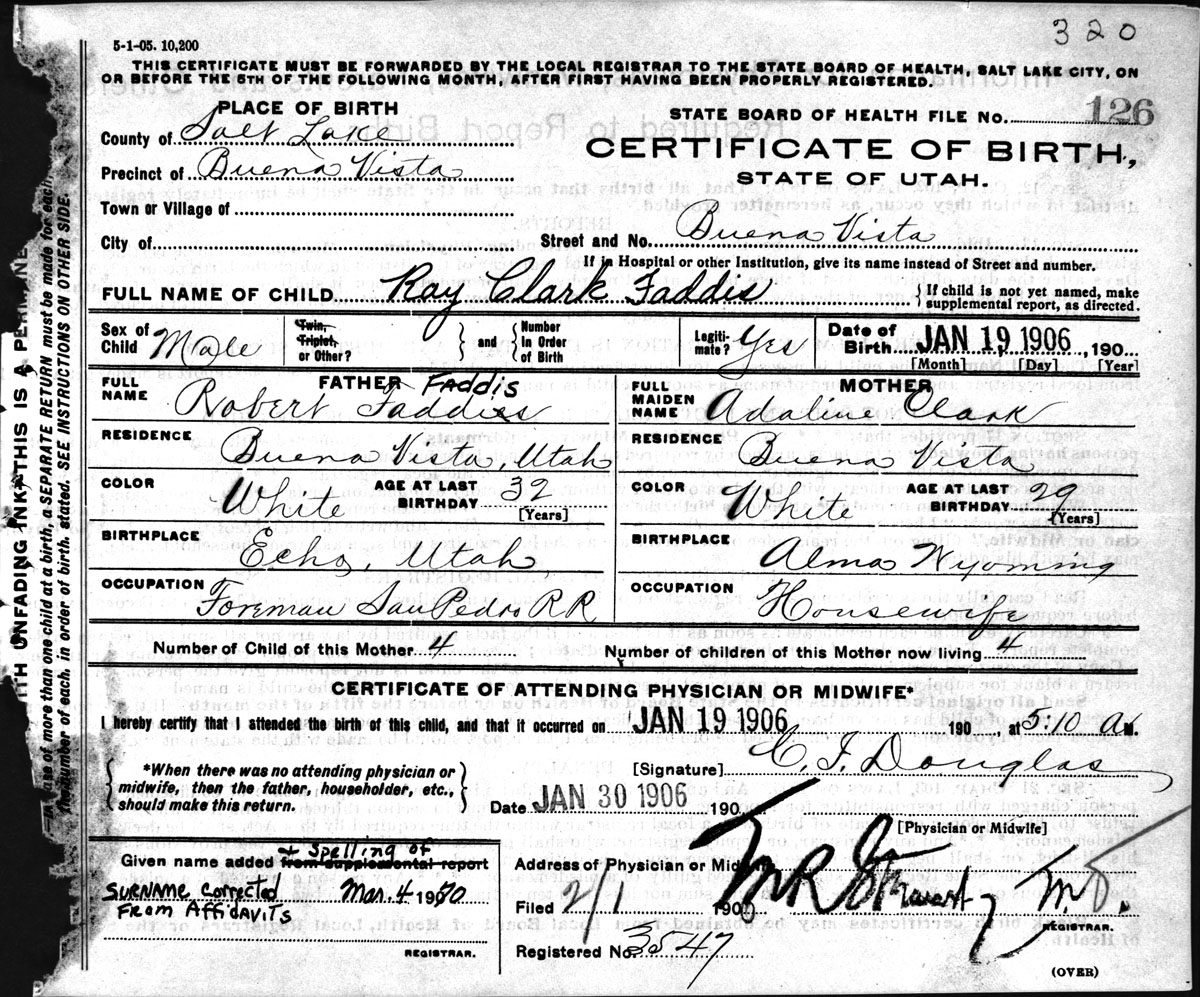 320
5-1-05. 10,200
THIS CERTIFICATE MUST BE FORWARDED BY THE LOCAL REGISTRAR TO THE STATE BOARD OF HEALTH, SALT LAKE CITY, ON
OR BEFORE THE 5TH OF THE FOLLOWING MONTH, AFTER FIRST HAVING BEEN PROPERLY REGISTERED.
PLACE OF BIRTH
STATE BOARD OF HEALTH FILE No. 126
County of Salt Lake
CERTIFICATE OF BIRTH,
Precinct of Buena Vista
STATE OF UTAH.
Town or Village of
City of
Street and No. Buena Vista
If in Hospital or other Institution, give its name instead of Street and number.
FULL NAME OF CHILD Ray Clark Faddis { If child is not yet named, make supplemental report, as directed.
Sex of Child Male
Twin, Triplet, or Other? } and { Number In Order of Birth
Legiti-mate? Yes
Date of Birth JAN 19 1906, 190
[Month] [Day] [Year]
FATHER Faddis
FULL NAME Robert Faddiss
RESIDENCE Buena Vista, Utah
COLOR White AGE AT LAST BIRTHDAY 32 [Years]
BIRTHPLACE Echo, Utah
OCCUPATION Foreman San Pedro R.R
MOTHER
FULL MAIDEN NAME Adaline Clark
RESIDENCE Buena Vista
COLOR White AGE AT LAST BIRTHDAY 29 [Years]
BIRTHPLACE Alma Wyoming
OCCUPATION Housewife
Number of Child of this Mother 4 Number of children of this Mother now living 4
CERTIFICATE OF ATTENDING PHYSICIAN OR MIDWIFE*
I hereby certify that I attended the birth of this child, and that it occurred on JAN 19 1906 190, at 5:10 A M.
{ *When there was no attending physician or midwife, then the father, householder, etc., should make this return. }
[Signature] C. I. Douglas
Date JAN 30 1906 190
[Physician or Midwife]
Given name added from supplemental report
+ Spelling of
SURNAME Corrected Mar. 4 1980
From AFFIDAVITS
REGISTRAR.
Address of Physician or Midw
Filed 2/1 1900
M R Stewart, M.D.
REGISTRAR.
Registered No. 3547
(OVER)
WITH UNFADING INK THIS IS A
In case of more than one child at a birth, a SEPARATE RETURN must be made for each,
the number of each, in order of birth, stated. SEE INSTRUCTIONS ON OTHER SIDE.